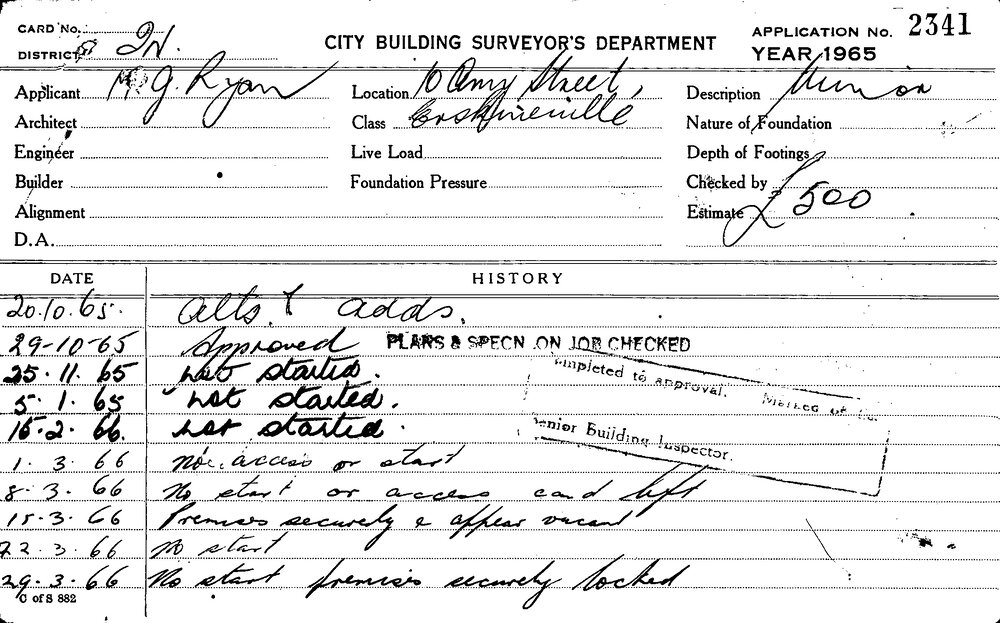 CARD No.
DISTRICT 2N.
CITY BUILDING SURVEYOR'S DEPARTMENT
APPLICATION No. 2341
YEAR 1965
Applicant M. G. Ryan
Location 10 Amy Street,
Erskineville
Description Minor
Architect
Class
Nature of Foundation
Engineer
Live Load
Depth of Footings
Builder
Foundation Pressure
Checked by
Alignment
Estimate £500
D.A.
DATE HISTORY
20.10.65. Alts. & adds.
29-10-65 Approved PLANS & SPECN ON JOB CHECKED
25.11.65 Not started.
5.1.65 Not started.
15.2.66. Not started.
Completed to approval. Marked off
Senior Building Inspector.
1.3.66 No access or start
8.3.66 No start or access card left
15.3.66 Premises securely & appear vacant
22.3.66 No start
29.3.66 No start premises securely locked
C of S 882